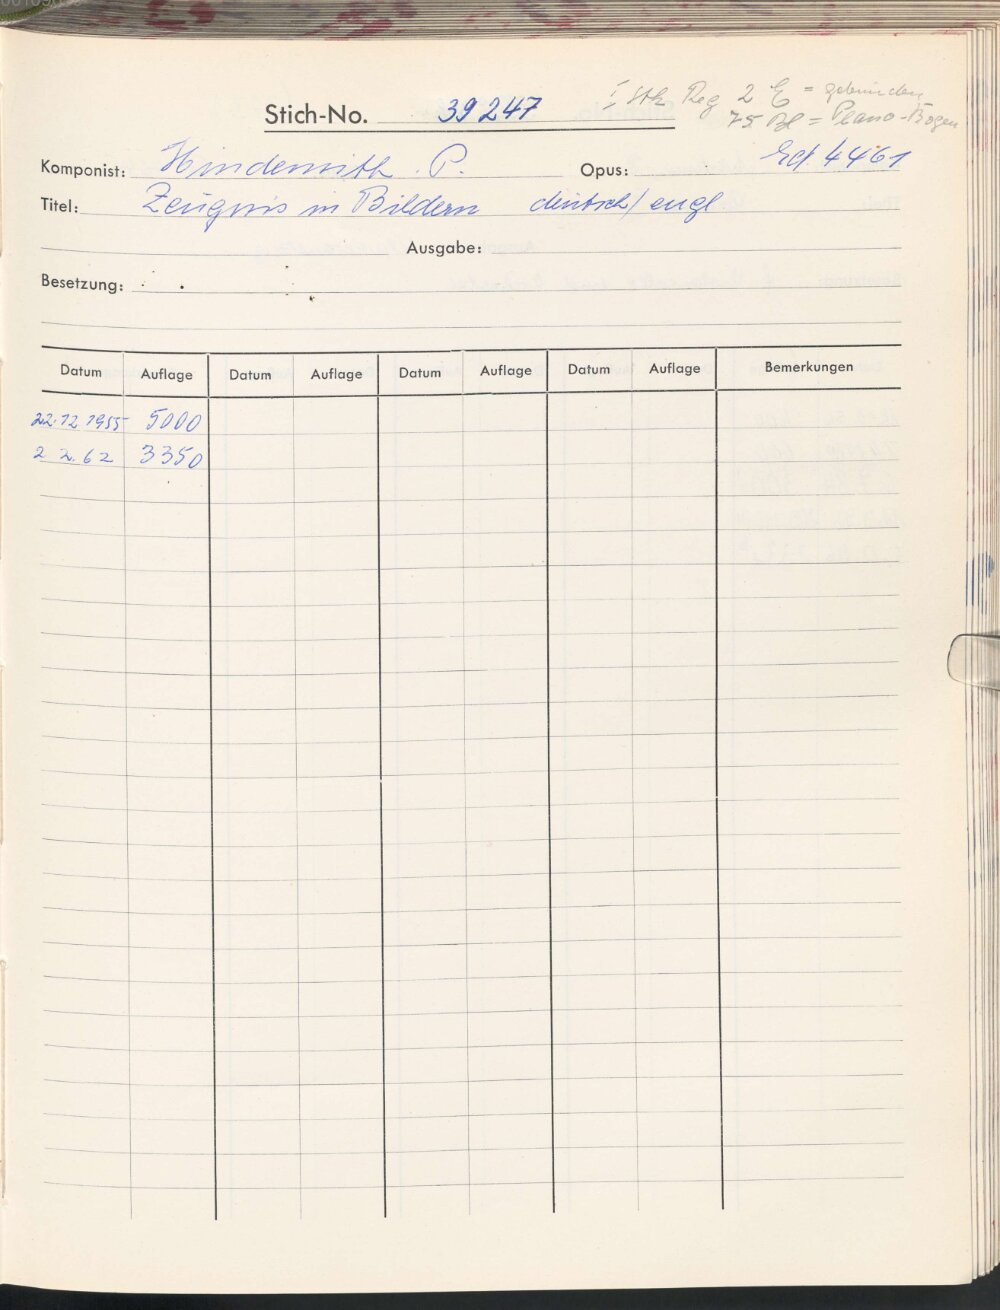 Stk. Reg 2 E = gebunden
Stich-No. 39247 75 Bl = Plano-Bogen
Komponist: Hindemith P. Opus: Ed. 4461
Titel: Zeugnis in Bildern deutsch/engl
Ausgabe:
Besetzung:
Datum Auflage Datum Auflage Datum Auflage Datum Auflage Bemerkungen
22.12 1955 5000
2 2. 62 3350